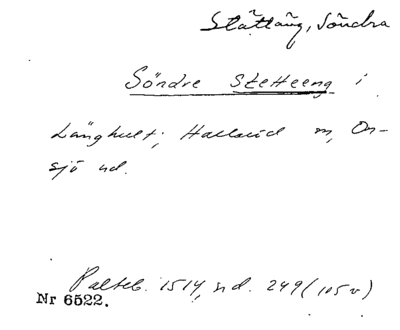 Slättäng, Södra
Söndre Stetteeng i
Långhult, Halland m, On-
sjö hd.
Palteb. 1514, s. 249 (105 v)
Nr 6522.